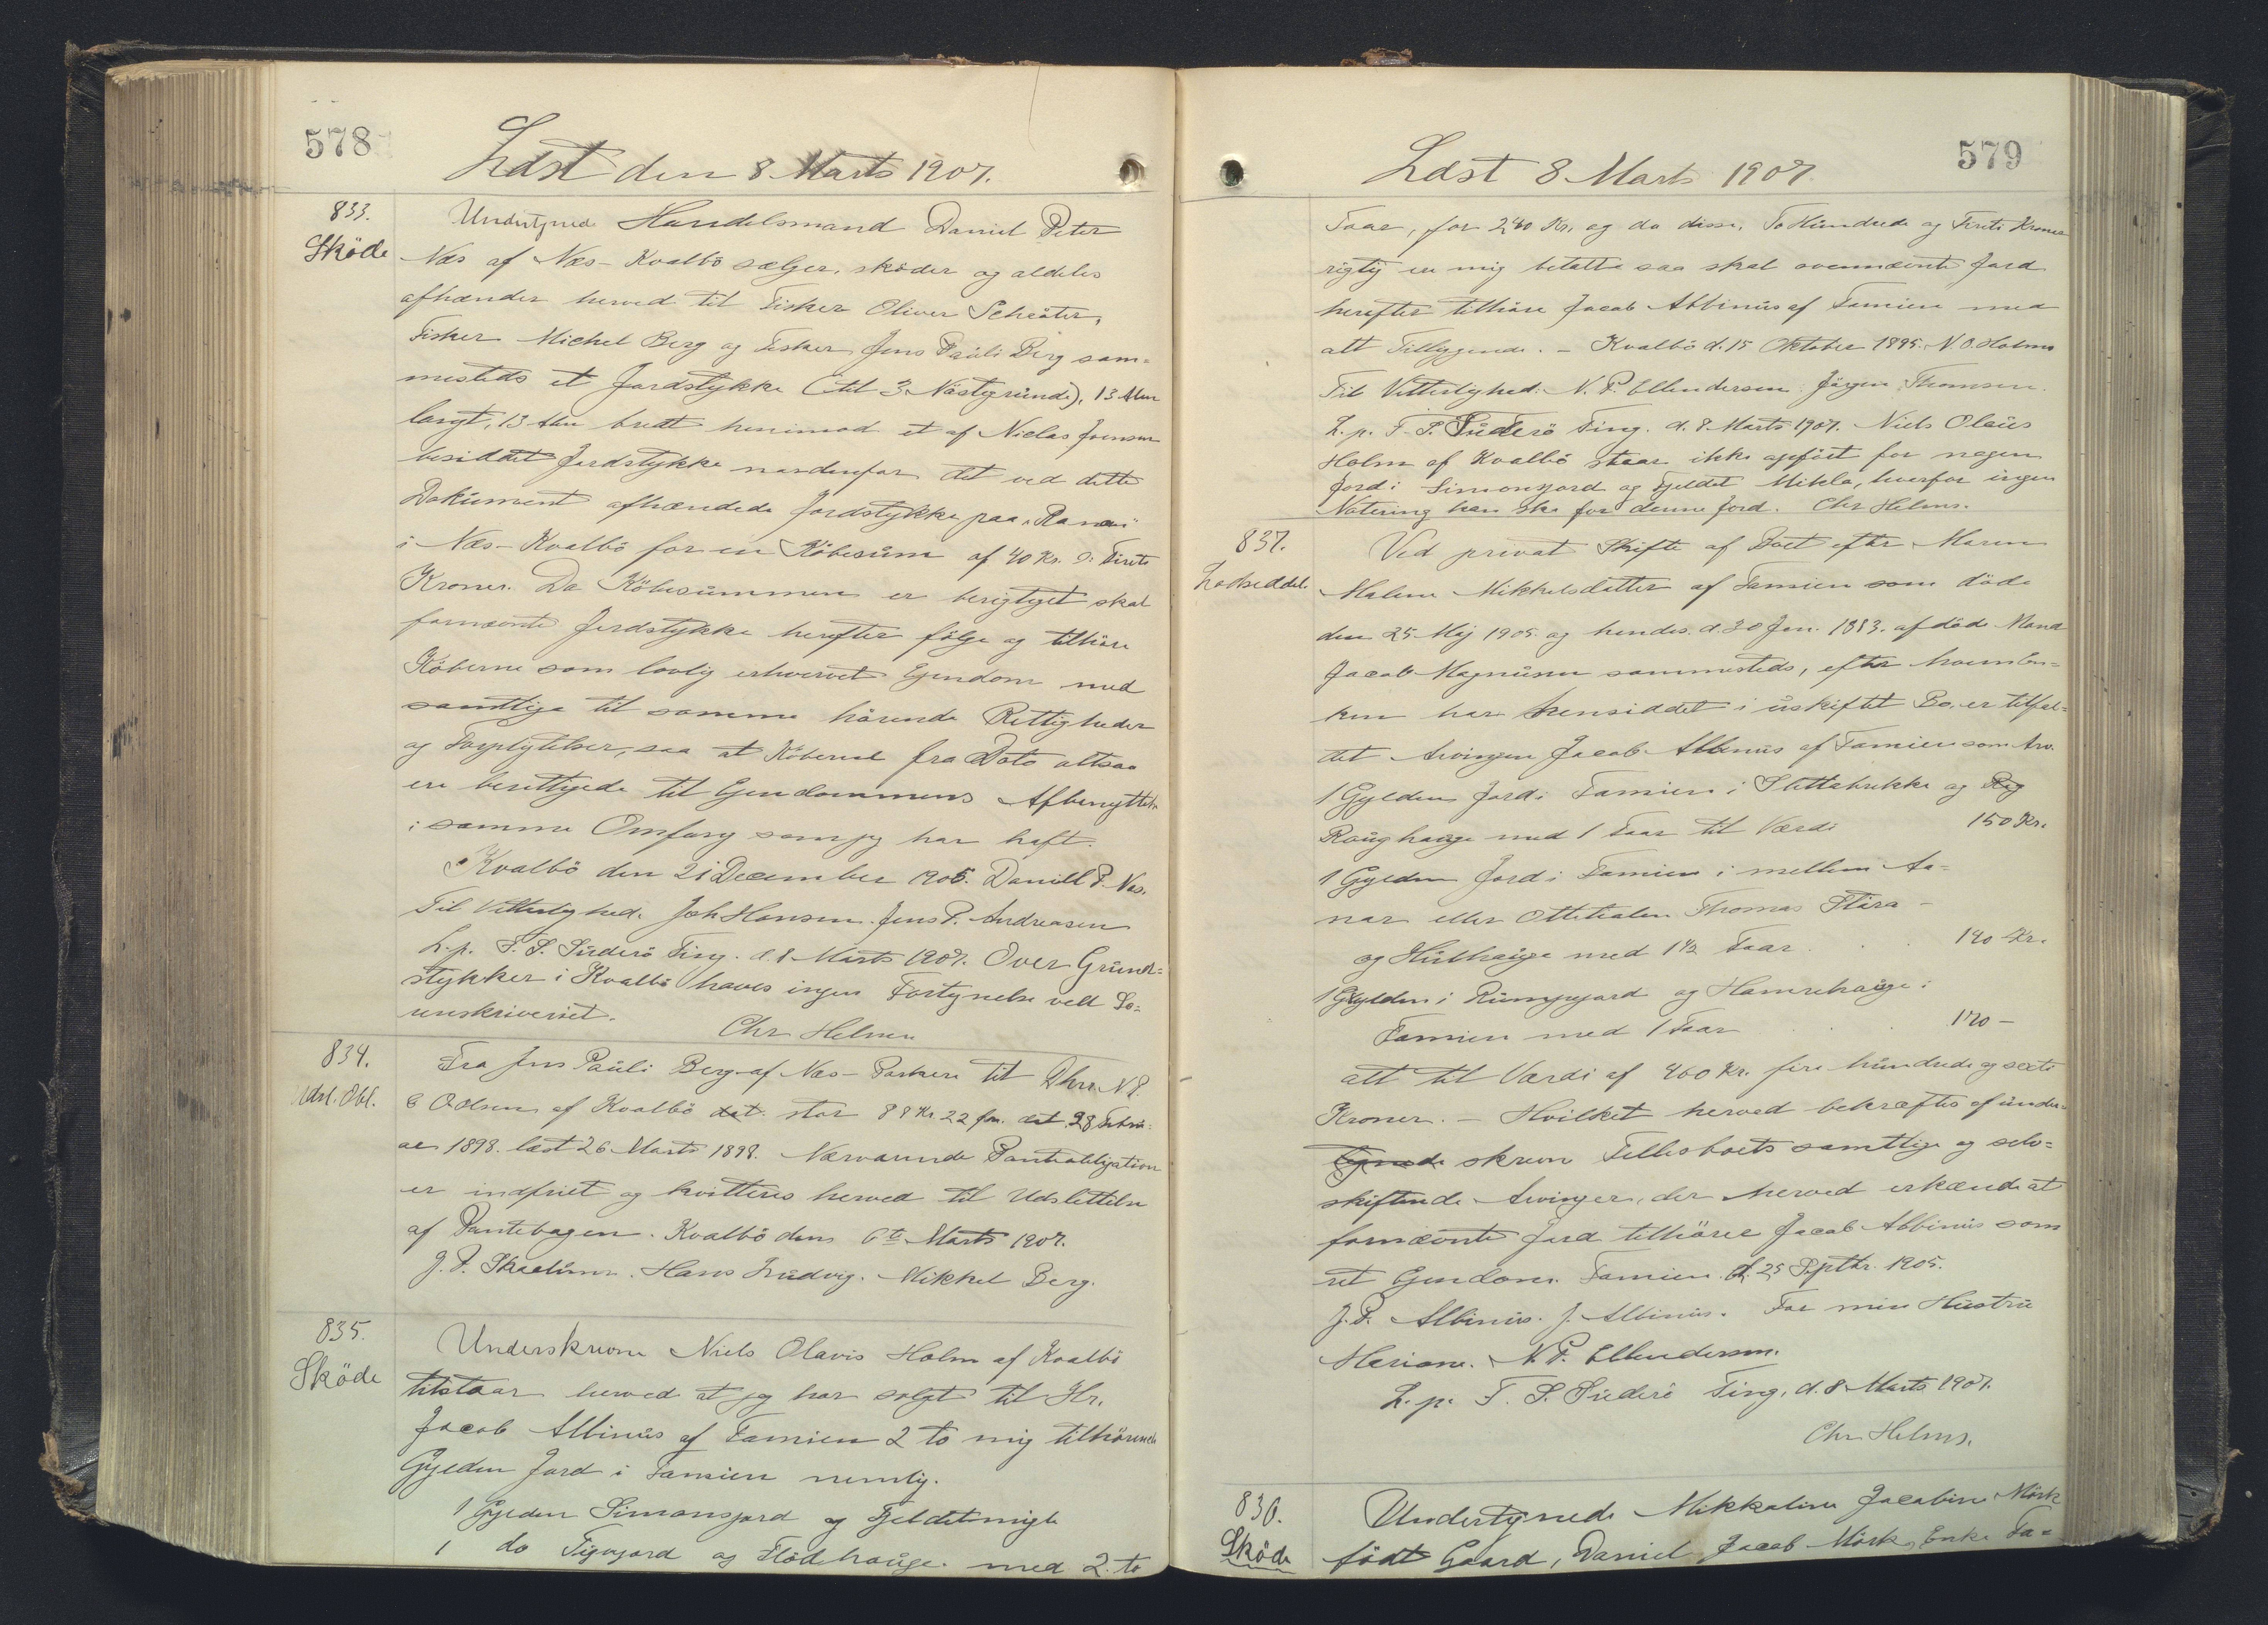 578
Læst den 8 Marts 1907.
833.
Sköde
Undertegnede Handelsmand Daniel Peter
Næs af Næs-Kvalbö sælger, sköder og aldeles
afhænder herved til Fisker Oliver Schröter,
Fisker Michel Berg og Fisker Jens Pauli Berg sam-
mesteds et Jordstykke (til 3 Nöstgrunde), 13 Alen
langt, 13 Alen bredt henimod et af Niclas Joensen
besiddet Jordstykke nordenfor det ved dette
Dokument afhændede Jordstykke paa "
i Næs-Kvalbö for en Köbesum af 40 Kr. Firti
Kroner. Da Köbesummen er berigtiget skal
fornævnte Jordstykke herefter fölge og tilhöre
Köberne som lovlig erhvervet Ejendom med
samtlige til samme hörende Rettigheder
og Forpligtelser, saa at Köberne fra Dato altsaa
ere berettigede til Ejendommens Afbenyttelse
i samme Omfang som jeg har haft.
Kvalbö den 21 December 1905. Daniel P. Næs.
Til Vitterlighed. Joh Hansen. Jens P. Andreasen
L. p. F. S. Suderö Ting. d. 8 Marts 1907. Over Grund-
stykker i Kvalbö haves ingen Fortegnelse ved So-
renskriveriet.
Chr Helms
834.
Udsl. Obl.
Fra Jens Pauli Berg af Næs - til N P.
af Kvalbö dat. stor 88 Kr. 22 dat. 28 Febru-
ar 1898. læst 26 Marts 1898. Nærværende Panteobligation
er indfriet og kvitteres herved til Udslettelse
af Pantebogen. Kvalbö den 6te Marts 1907.
J. P. Skaalum. Hans Ludvig. Mikkel Berg.
835.
Sköde
Underskrevne Niels Olavis Holm af Kvalbö
tilstaar herved at jeg har solgt til Hr.
Jacob Albinus af Famien 2 to mig tilhörende
Gylden Jord i Famien nemlig.
1 Gylden Simonsjord og
1 do og med 2 to
579
Læst 8 Marts 1907
Faar, for 240 Kr. og da disse, To Hundrede og Firti Kroner
rigtig er mig betalte saa skal ovennævnte Jord
herefter tilhöre Jacob Albinus af Famien med
alt Tilliggende. - Kvalbö d. 15 Oktober 1895. N. O. Holm
Til Vitterlighed. N. P. Ellendersen. Jörgen Thomsen.
L. p. F. S. Suderö Ting. d. 8 Marts 1907. Niels Olaus
Holm af Kvalbö staar ikke opfört for nogen
Jord i Simonsjord og Fjeldet Mikla, hvorfor ingen
Notering kan ske for denne Jord. Chr Helms.
837.
Lodseddel.
Ved privat Skifte af Boet efter Maren
Malene Mikkelsdatter af Famien som döde
den 25 Maj 1905. og hendes d. 30 Jan. 1883. afdöde Mand
Jacob Magnusen sammesteds, efter hvem En-
ken har hensiddet i uskiftet Bo, er tilfal-
det Arvingen Jacob Albinus af Famien som Arv.
1 Gylden Jord i Famien i Slettabrekke og
med 1 Faar til Værdi 150 Kr.
1 Gylden Jord i Famien i mellem Aa-
nar eller Thomas
og med 1 1/2 Faar 140 Kr.
1 Gylden i og Hamrehauge i
Famien med 1 Faar 170 -
alt til Værdi af 460 Kr. fire hundrede og sexti
Kroner. - Hvilket herved bekræftes af under-
tegnede skrevne Fællesboets samtlige og selv-
skiftende Arvinger, der herved erkende at
fornævnte Jord tilhörer Jacob Albinus som
ret Ejendom. Famien d. 25 Septbr. 1905.
J. P. Albinus. J. Albinus. For min Hustru
Mariane. N. P. Ellendersen.
L. p. F. S. Suderö Ting, d. 8 Marts 1907.
Chr Helms.
836.
Sköde
Undertegnede Mikkaline Jacobine Mörk
födt Gaard, Daniel Jacob Mörks Enke Fa-